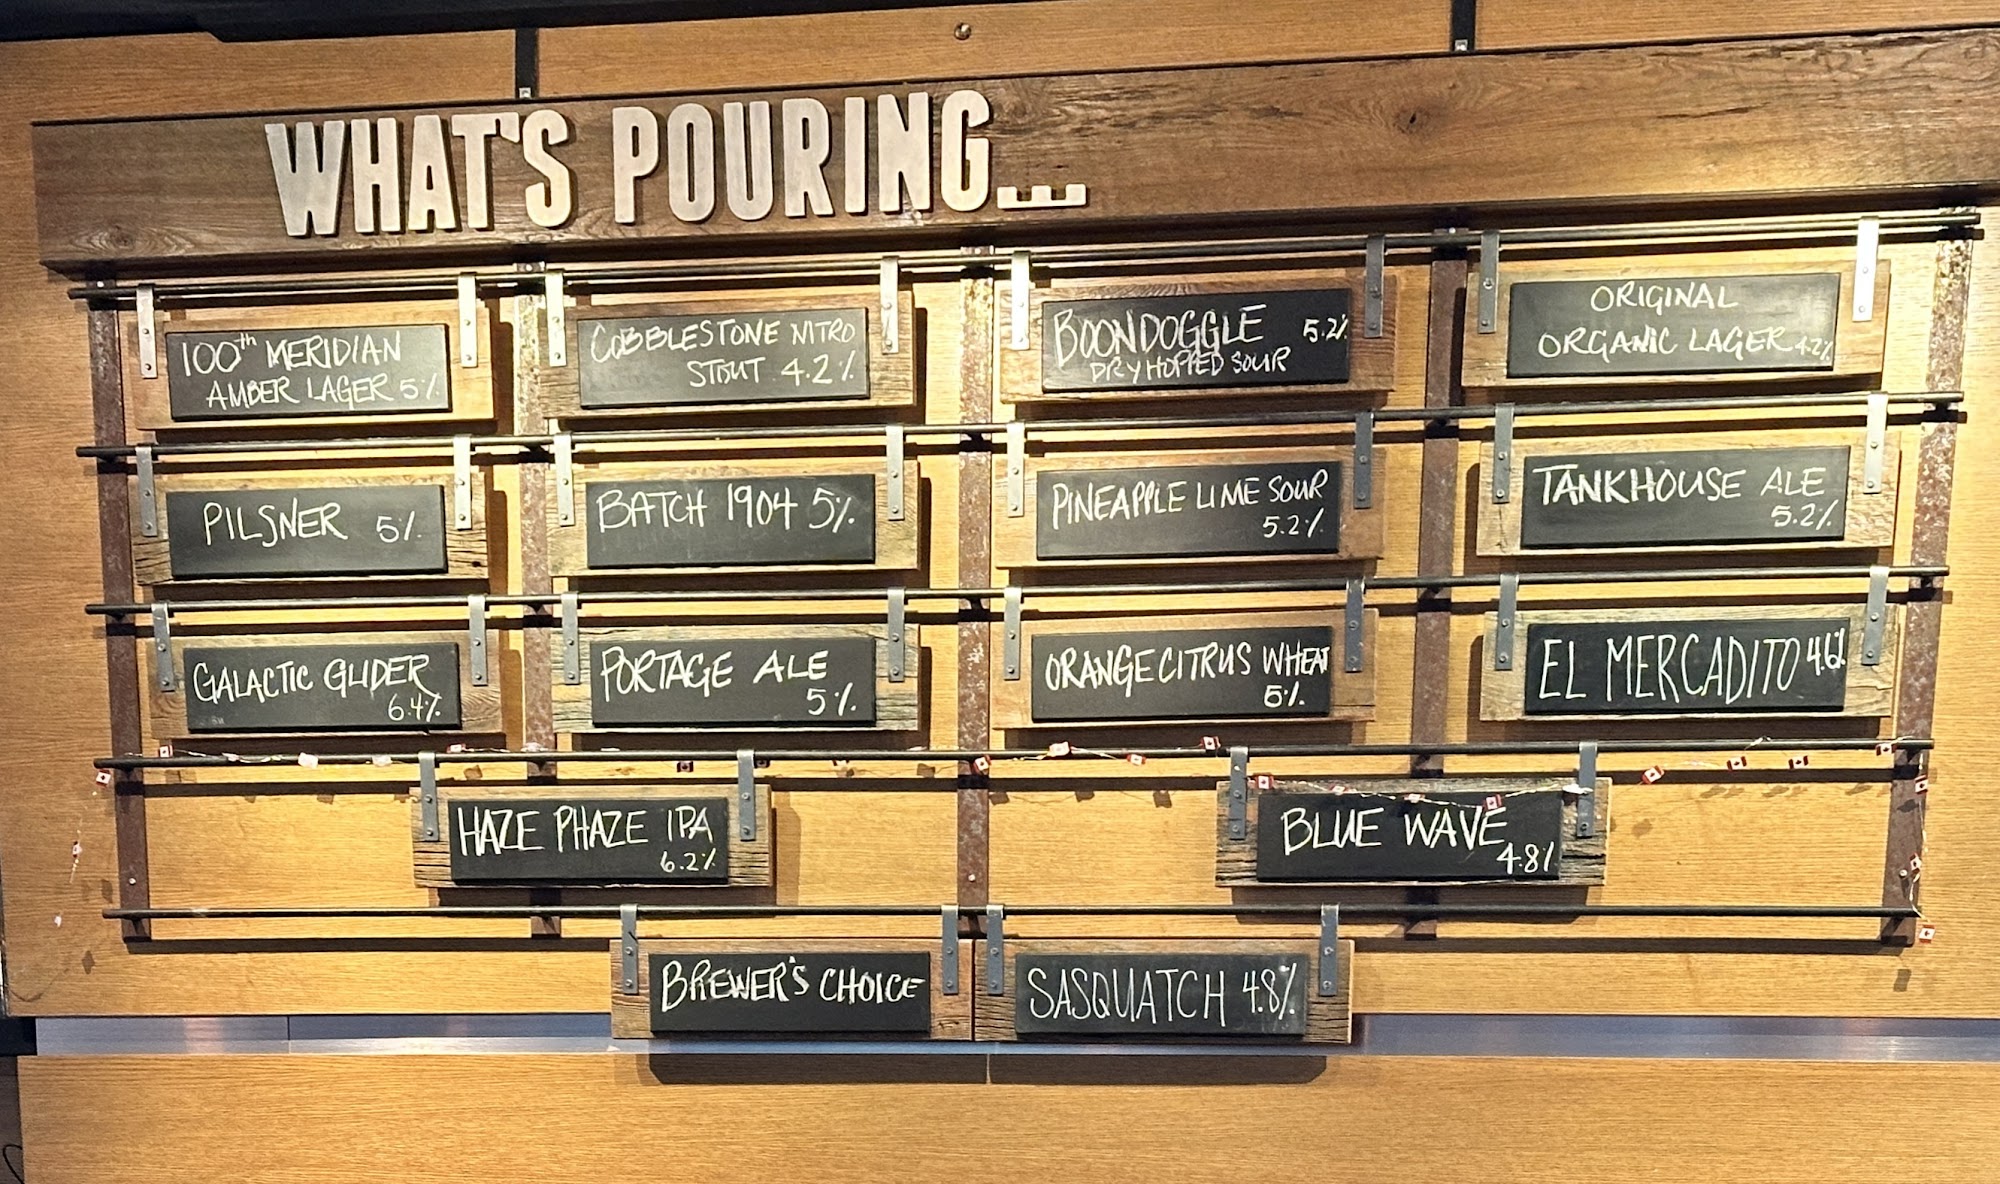 WHAT'S POURING...
100th MERIDIAN
AMBER LAGER 5%
COBBLESTONE NITRO
STOUT 4.2%
BOONDOGGLE 5.2%
DRY HOPPED SOUR
ORIGINAL
ORGANIC LAGER 4.2%
PILSNER 5%
BATCH 1904 5%
PINEAPPLE LIME SOUR
5.2%
TANKHOUSE ALE
5.2%
GALACTIC GLIDER
6.4%
PORTAGE ALE
5%
ORANGE CITRUS WHEAT
5%
EL MERCADITO 4.6%
HAZE PHAZE IPA
6.2%
BLUE WAVE
4.8%
BREWER'S CHOICE
SASQUATCH 4.8%